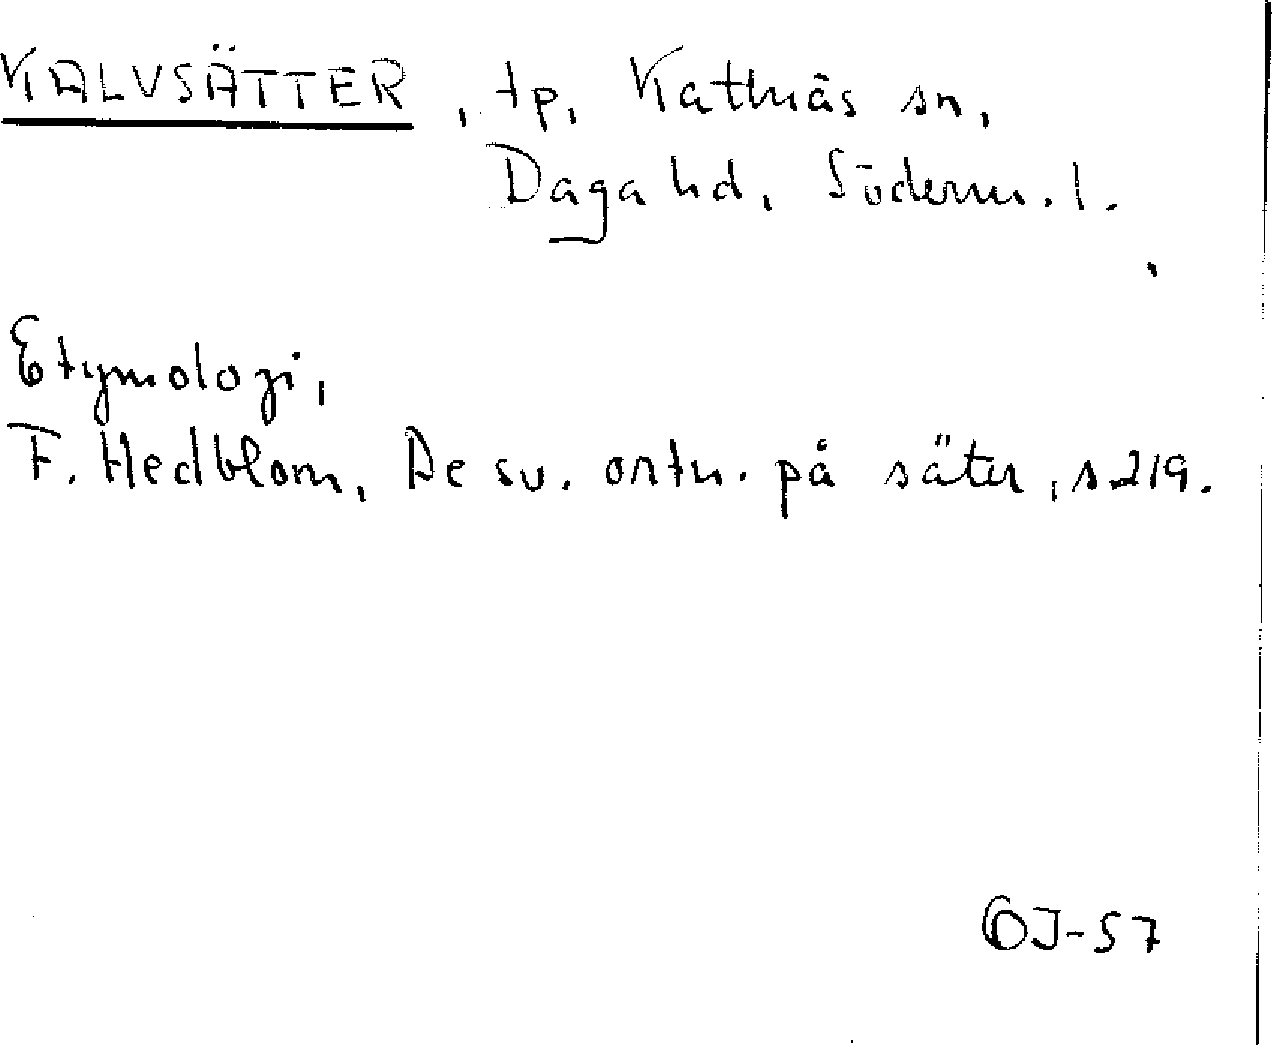 KALVSÄTTER, tp, Kattnäs sn,
Daga hd, Söderm. l.
Etymologi,
F. Hedblom, De sv. ortn. på säter, s 219.
OJ-57